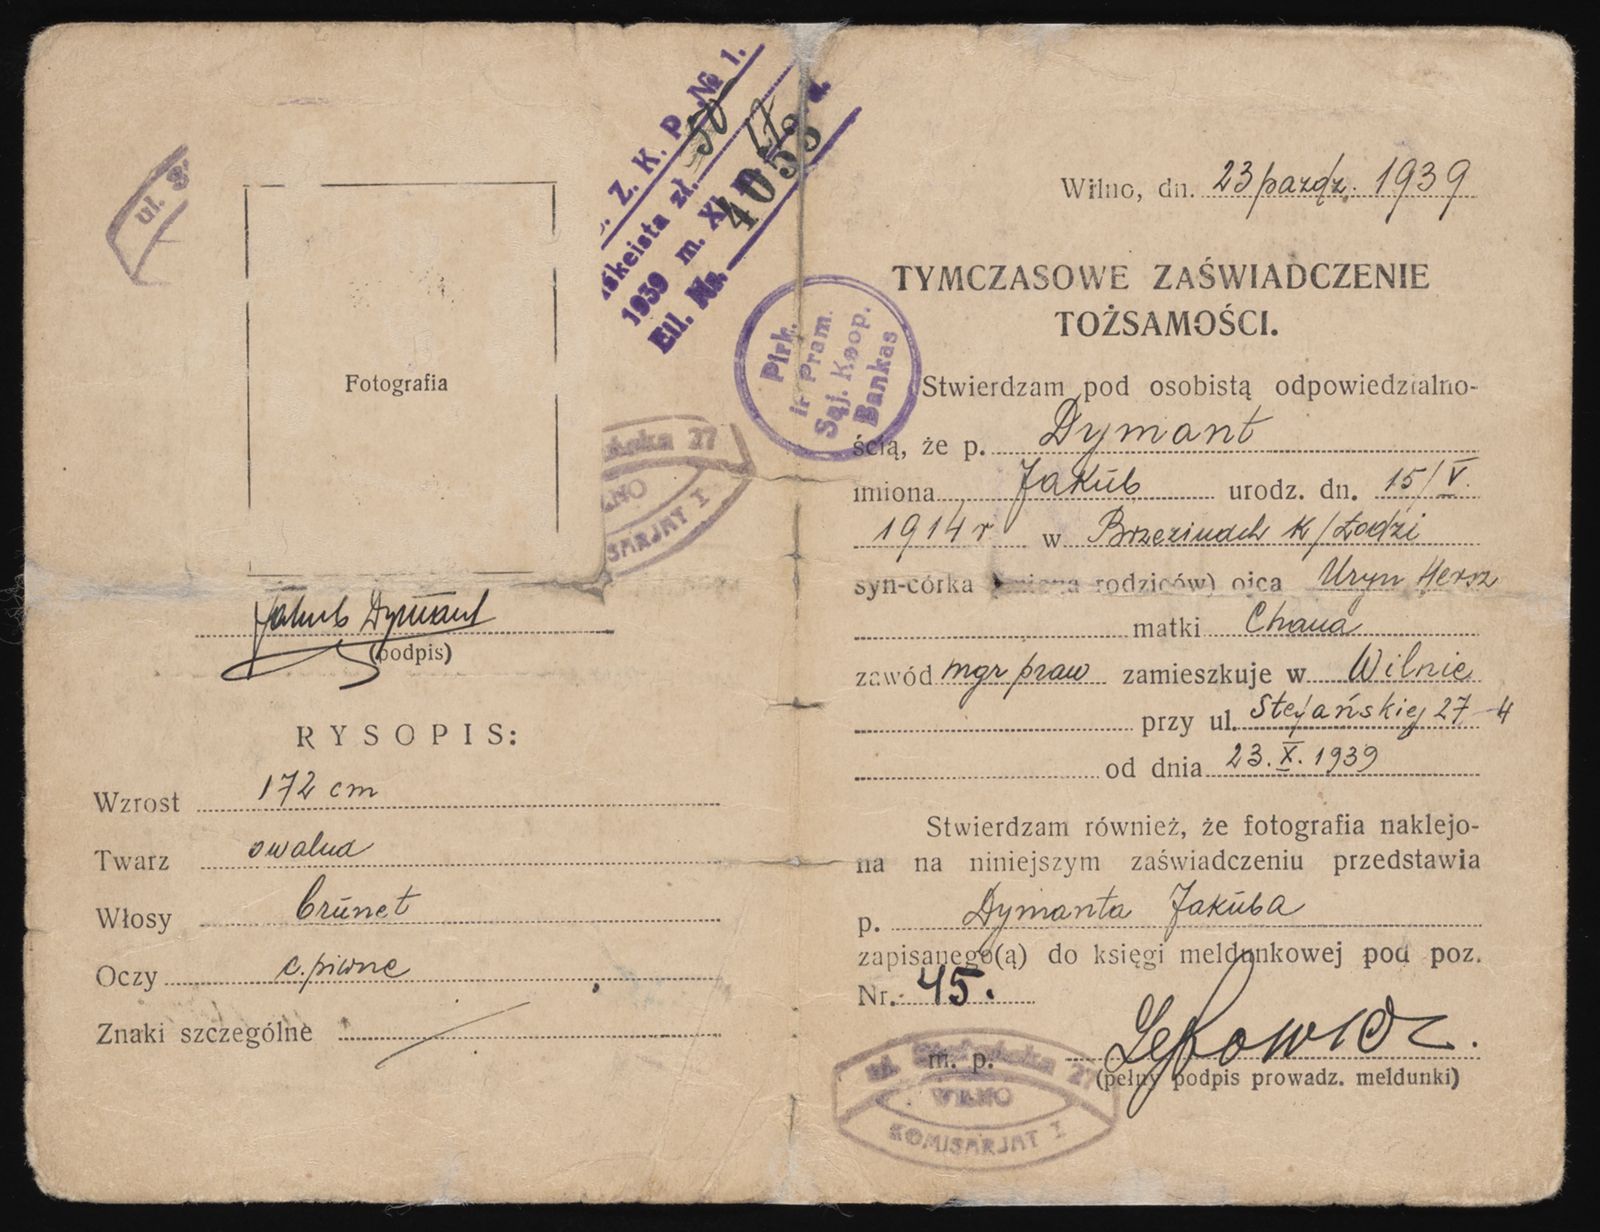 ul. S
Z. K. P. № 1.
iškeista zł. 50
1939 m. XI 17 d.
Eil. Nr. 4053
Pirk.
ir Pram.
Sąj. Koop.
Bankas
ńska 27
LNO
SARJAT I
Fotografia
Jakub Dymant
(podpis)
RYSOPIS:
Wzrost 172 cm
Twarz owalna
Włosy brunet
Oczy c. piwne
Znaki szczególne
Wilno, dn. 23 pazdz. 1939
TYMCZASOWE ZAŚWIADCZENIE
TOŻSAMOŚCI.
Stwierdzam pod osobistą odpowiedzialno-
ścią, że p. Dymant
imiona Jakub urodz. dn. 15/V.
1914 r w Brzezinach k/Łodzi
syn-córka (imiona rodziców) ojca Uryn Hersz
matki Chana
zawód mgr praw zamieszkuje w Wilnie
przy ul. Stefańskiej 27-4
od dnia 23. X. 1939
Stwierdzam również, że fotografia naklejo-
na na niniejszym zaświadczeniu przedstawia
p. Dymanta Jakuba
zapisanego(ą) do księgi meldunkowej pod poz.
Nr. 45.
m. p.
(pełny podpis prowadz. meldunki)
ul. Stefańska 27
WILNO
KOMISARJAT I